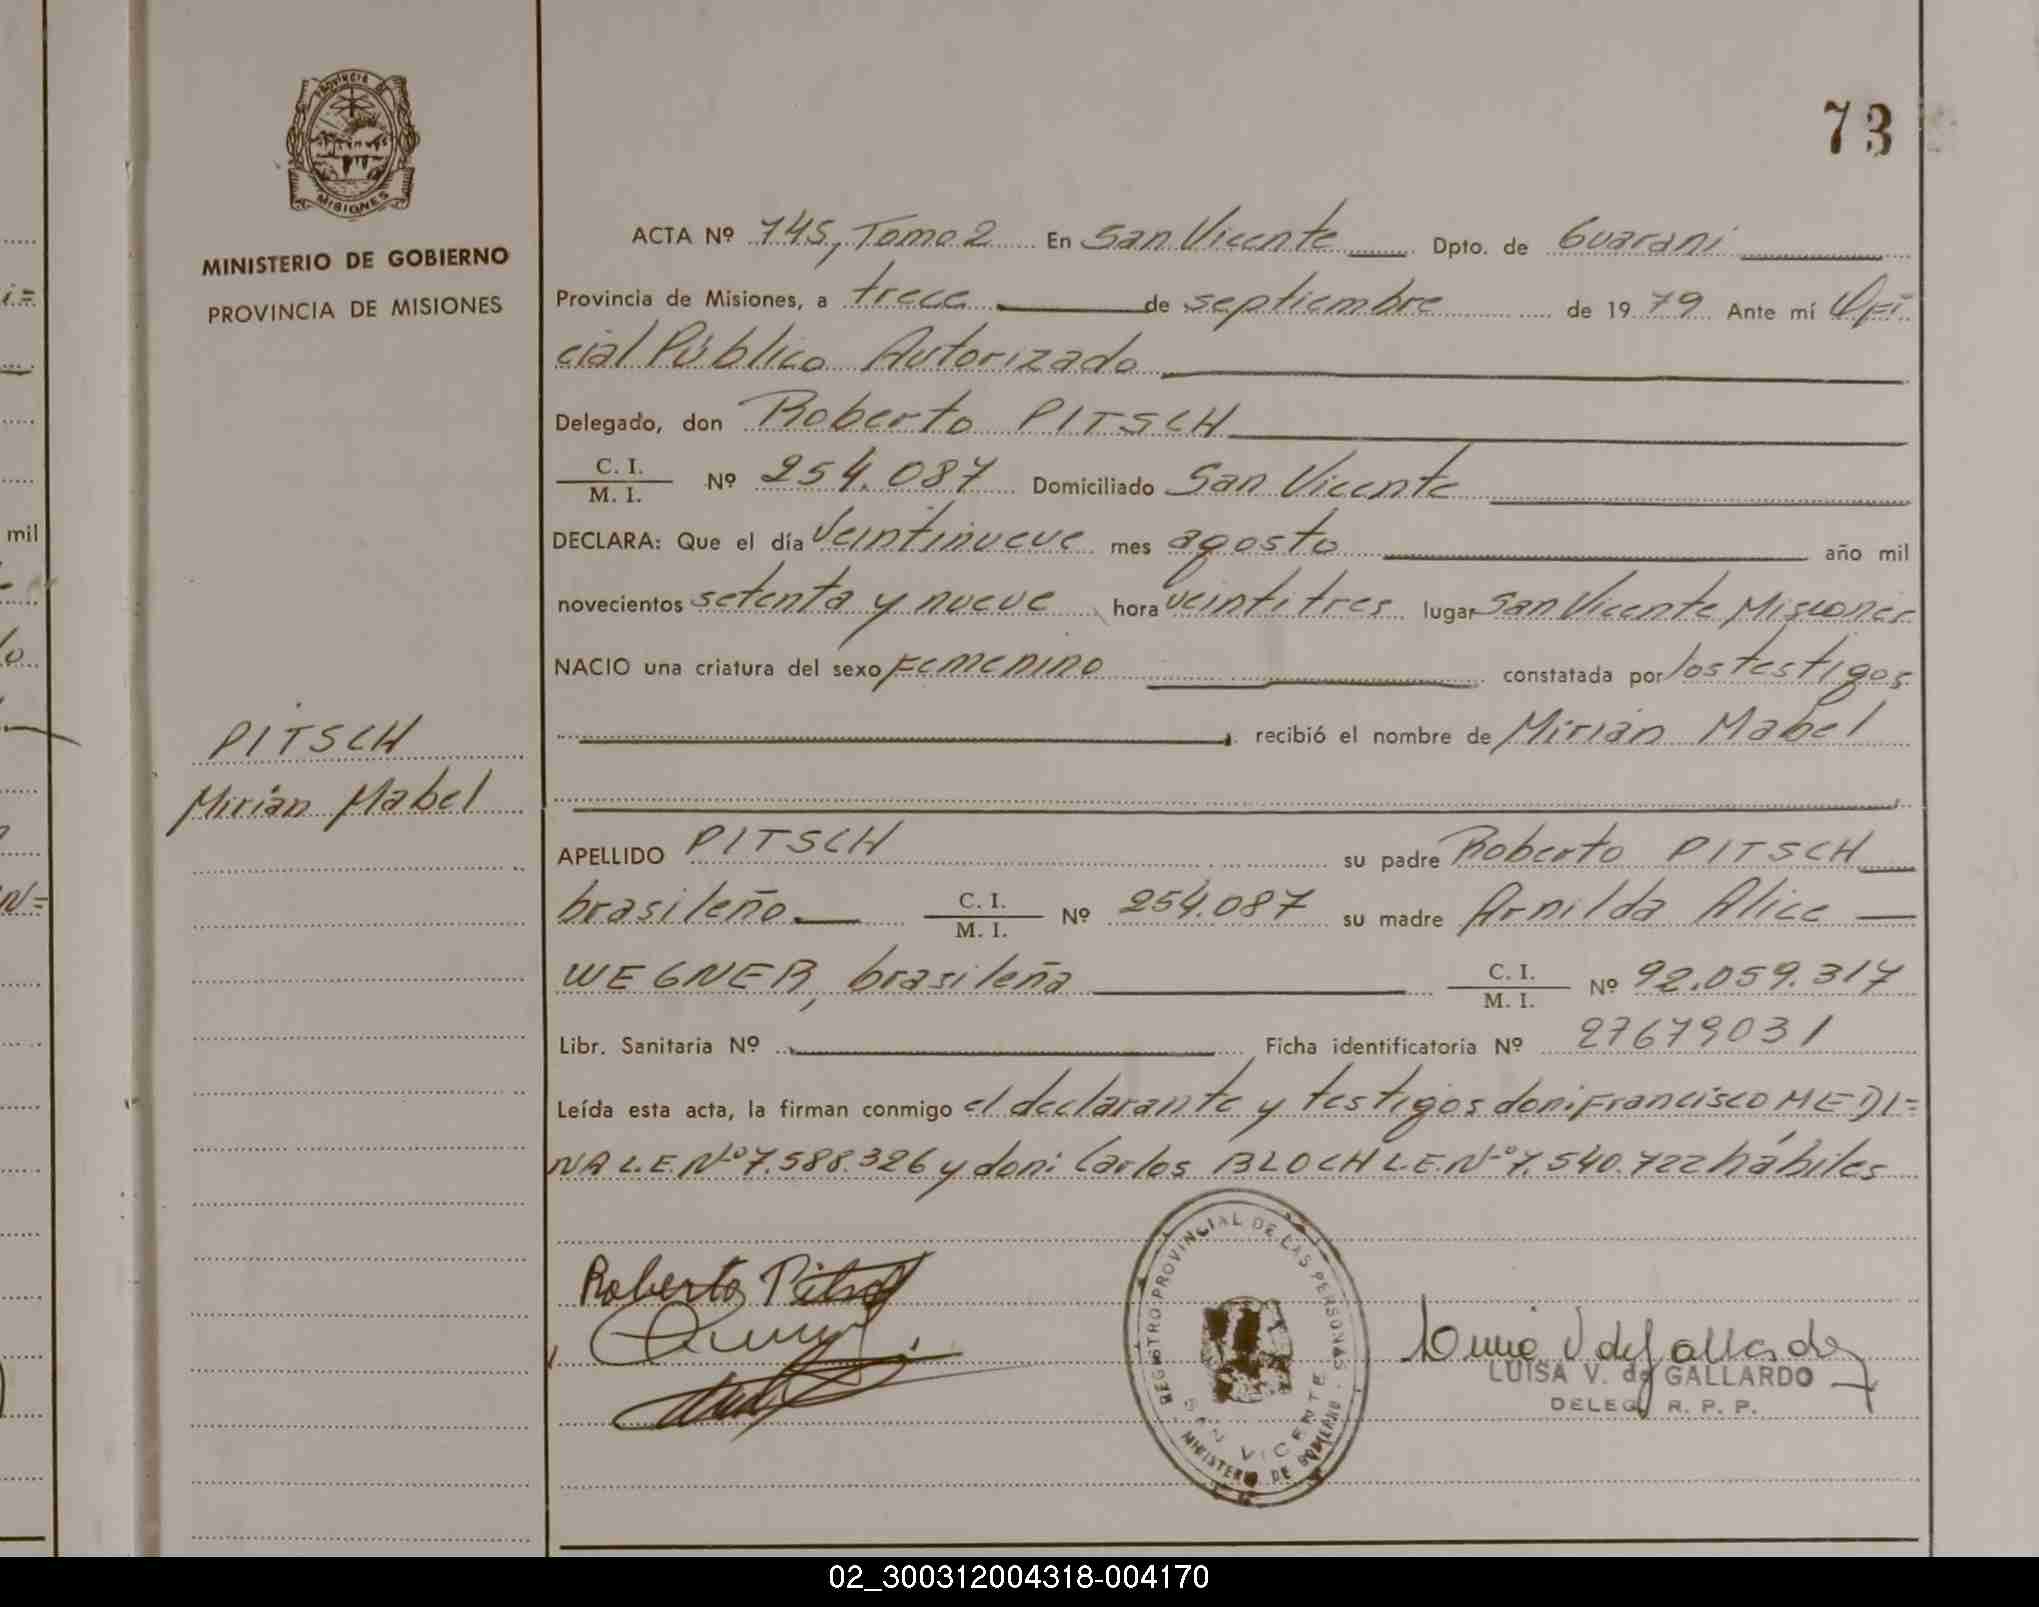 73
PROVINCIA DE
MISIONES
MINISTERIO DE GOBIERNO
PROVINCIA DE MISIONES
PITSCH
Mirian Mabel
ACTA Nº 745, Tomo 2 En San Vicente Dpto. de Guarani
Provincia de Misiones, a trece de septiembre de 1979 Ante mí Ofi
cial Público Autorizado
Delegado, don Roberto PITSCH
C. I.
M. I. Nº 254.087 Domiciliado San Vicente
DECLARA: Que el día veintinueve mes agosto año mil
novecientos setenta y nueve hora veintitres lugar San Vicente Misiones
NACIO una criatura del sexo Femenino constatada por los testigos
recibió el nombre de Mirian Mabel
APELLIDO PITSCH su padre Roberto PITSCH
brasileño C. I.
M. I. Nº 254.087 su madre Arnilda Alice
WEGNER, brasileña C. I.
M. I. Nº 92.059.317
Libr. Sanitaria Nº Ficha identificatoria Nº 27679031
Leída esta acta, la firman conmigo el declarante y testigos don: Francisco MEDI=
NA L.E. Nº 7.588.326 y don: Carlos BLOCH L.E. Nº 7.540.722 hábiles
Roberto Pitsch
REGISTRO PROVINCIAL DE LAS PERSONAS
SAN VICENTE
MINISTERIO DE GOBIERNO
LUISA V. de GALLARDO
DELEG. R. P. P.
mil
02_300312004318-004170